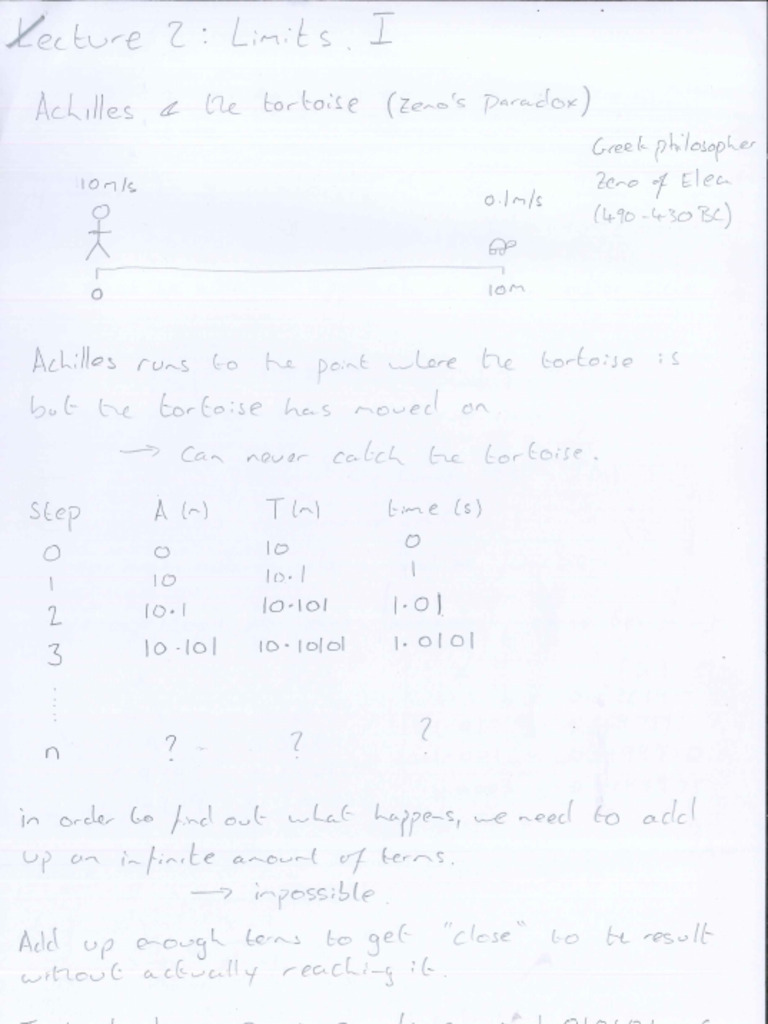 Lecture 2: Limits. I
Achilles & the tortoise (Zeno's Paradox)
Greek philosopher
Zeno of Elea
(490-430 BC)
10m/s
0.1m/s
0
10m
Achilles runs to the point where the tortoise is
but the tortoise has moved on.
→ can never catch the tortoise.
Step A (m) T (m) time (s)
0 0 10 0
1 10 10.1 1
2 10.1 10.101 1.01
3 10.101 10.10101 1.0101
n ? ? ?
in order to find out what happens, we need to add
up an infinite amount of terms.
→ impossible.
Add up enough terms to get "close" to the result
without actually reaching it.